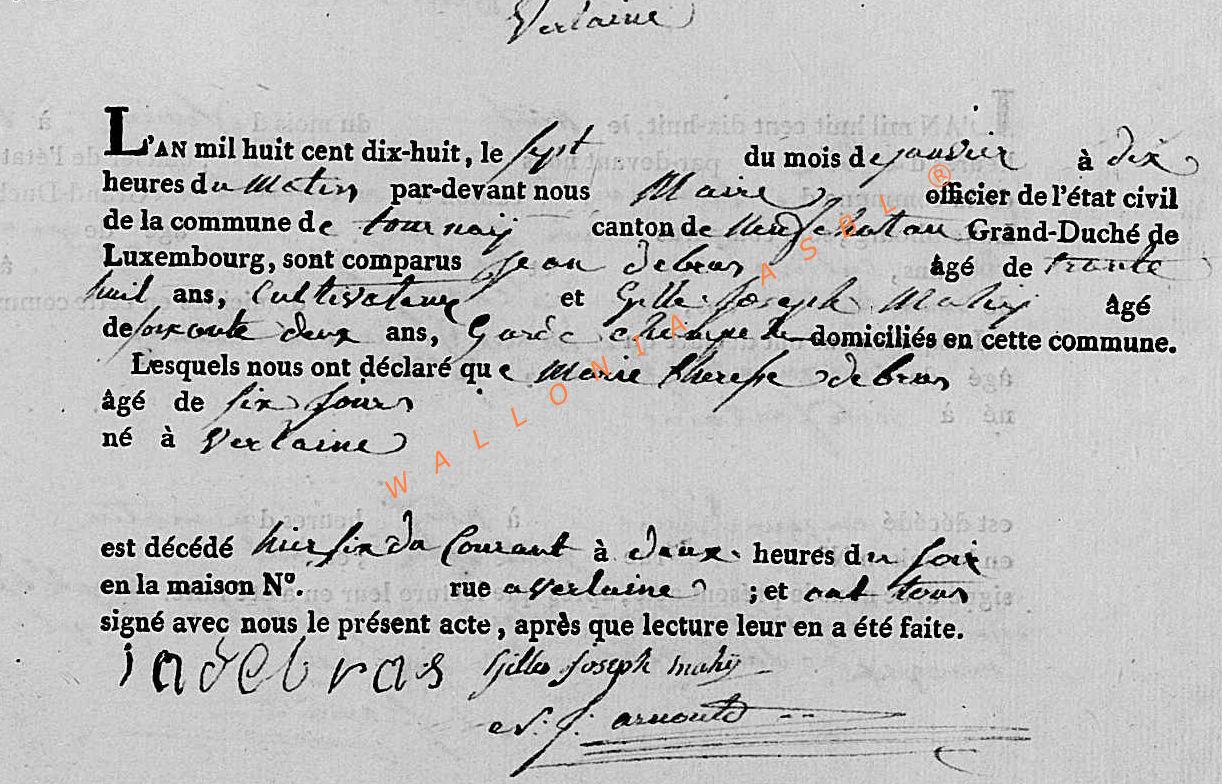 Verlaine
L'AN mil huit cent dix-huit, le sept du mois de janvier à dix
heures du Matin par-devant nous Maire officier de l'état civil
de la commune de tournay canton de Neufchatau Grand-Duché de
Luxembourg, sont comparus Jean debras âgé de trante
huit ans, Cultivateur et Gille Joseph Mahij âgé
de soixante deux ans, Garde champetre domiciliés en cette commune.
Lesquels nous ont déclaré que Marie therese debras
âgé de six jours
né à Verlaine
est décédé hier six du Courant à deux heures du soir
en la maison N°. rue a Verlaine ; et ont tous
signé avec nous le présent acte, après que lecture leur en a été faite.
j a debras Gilles Joseph mahij
J. arnould
WALLONIA ASBL ®